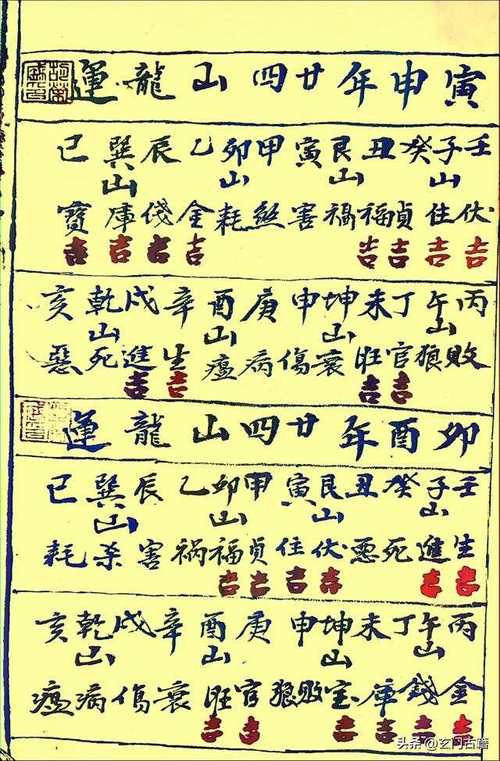 寅申年廿四山龍運
壬子癸丑艮寅甲卯乙辰巽巳
山山山山
伏住貞福禍害煞耗金錢庫寶
吉吉吉吉吉吉吉吉
丙午丁未坤申庚酉辛戌乾亥
山山山山
敗狼官旺衰傷病瘟生進死惡
吉吉吉吉
卯酉年廿四山龍運
壬子癸丑艮寅甲卯乙辰巽巳
山山山山
生進死惡伏住貞福祸害杀耗
吉吉吉吉吉吉
丙午丁未坤申庚酉辛戌乾亥
山山山山
金錢庫宝敗狼官旺衰傷病瘟
吉吉吉吉吉吉
头条 @玄门古籍